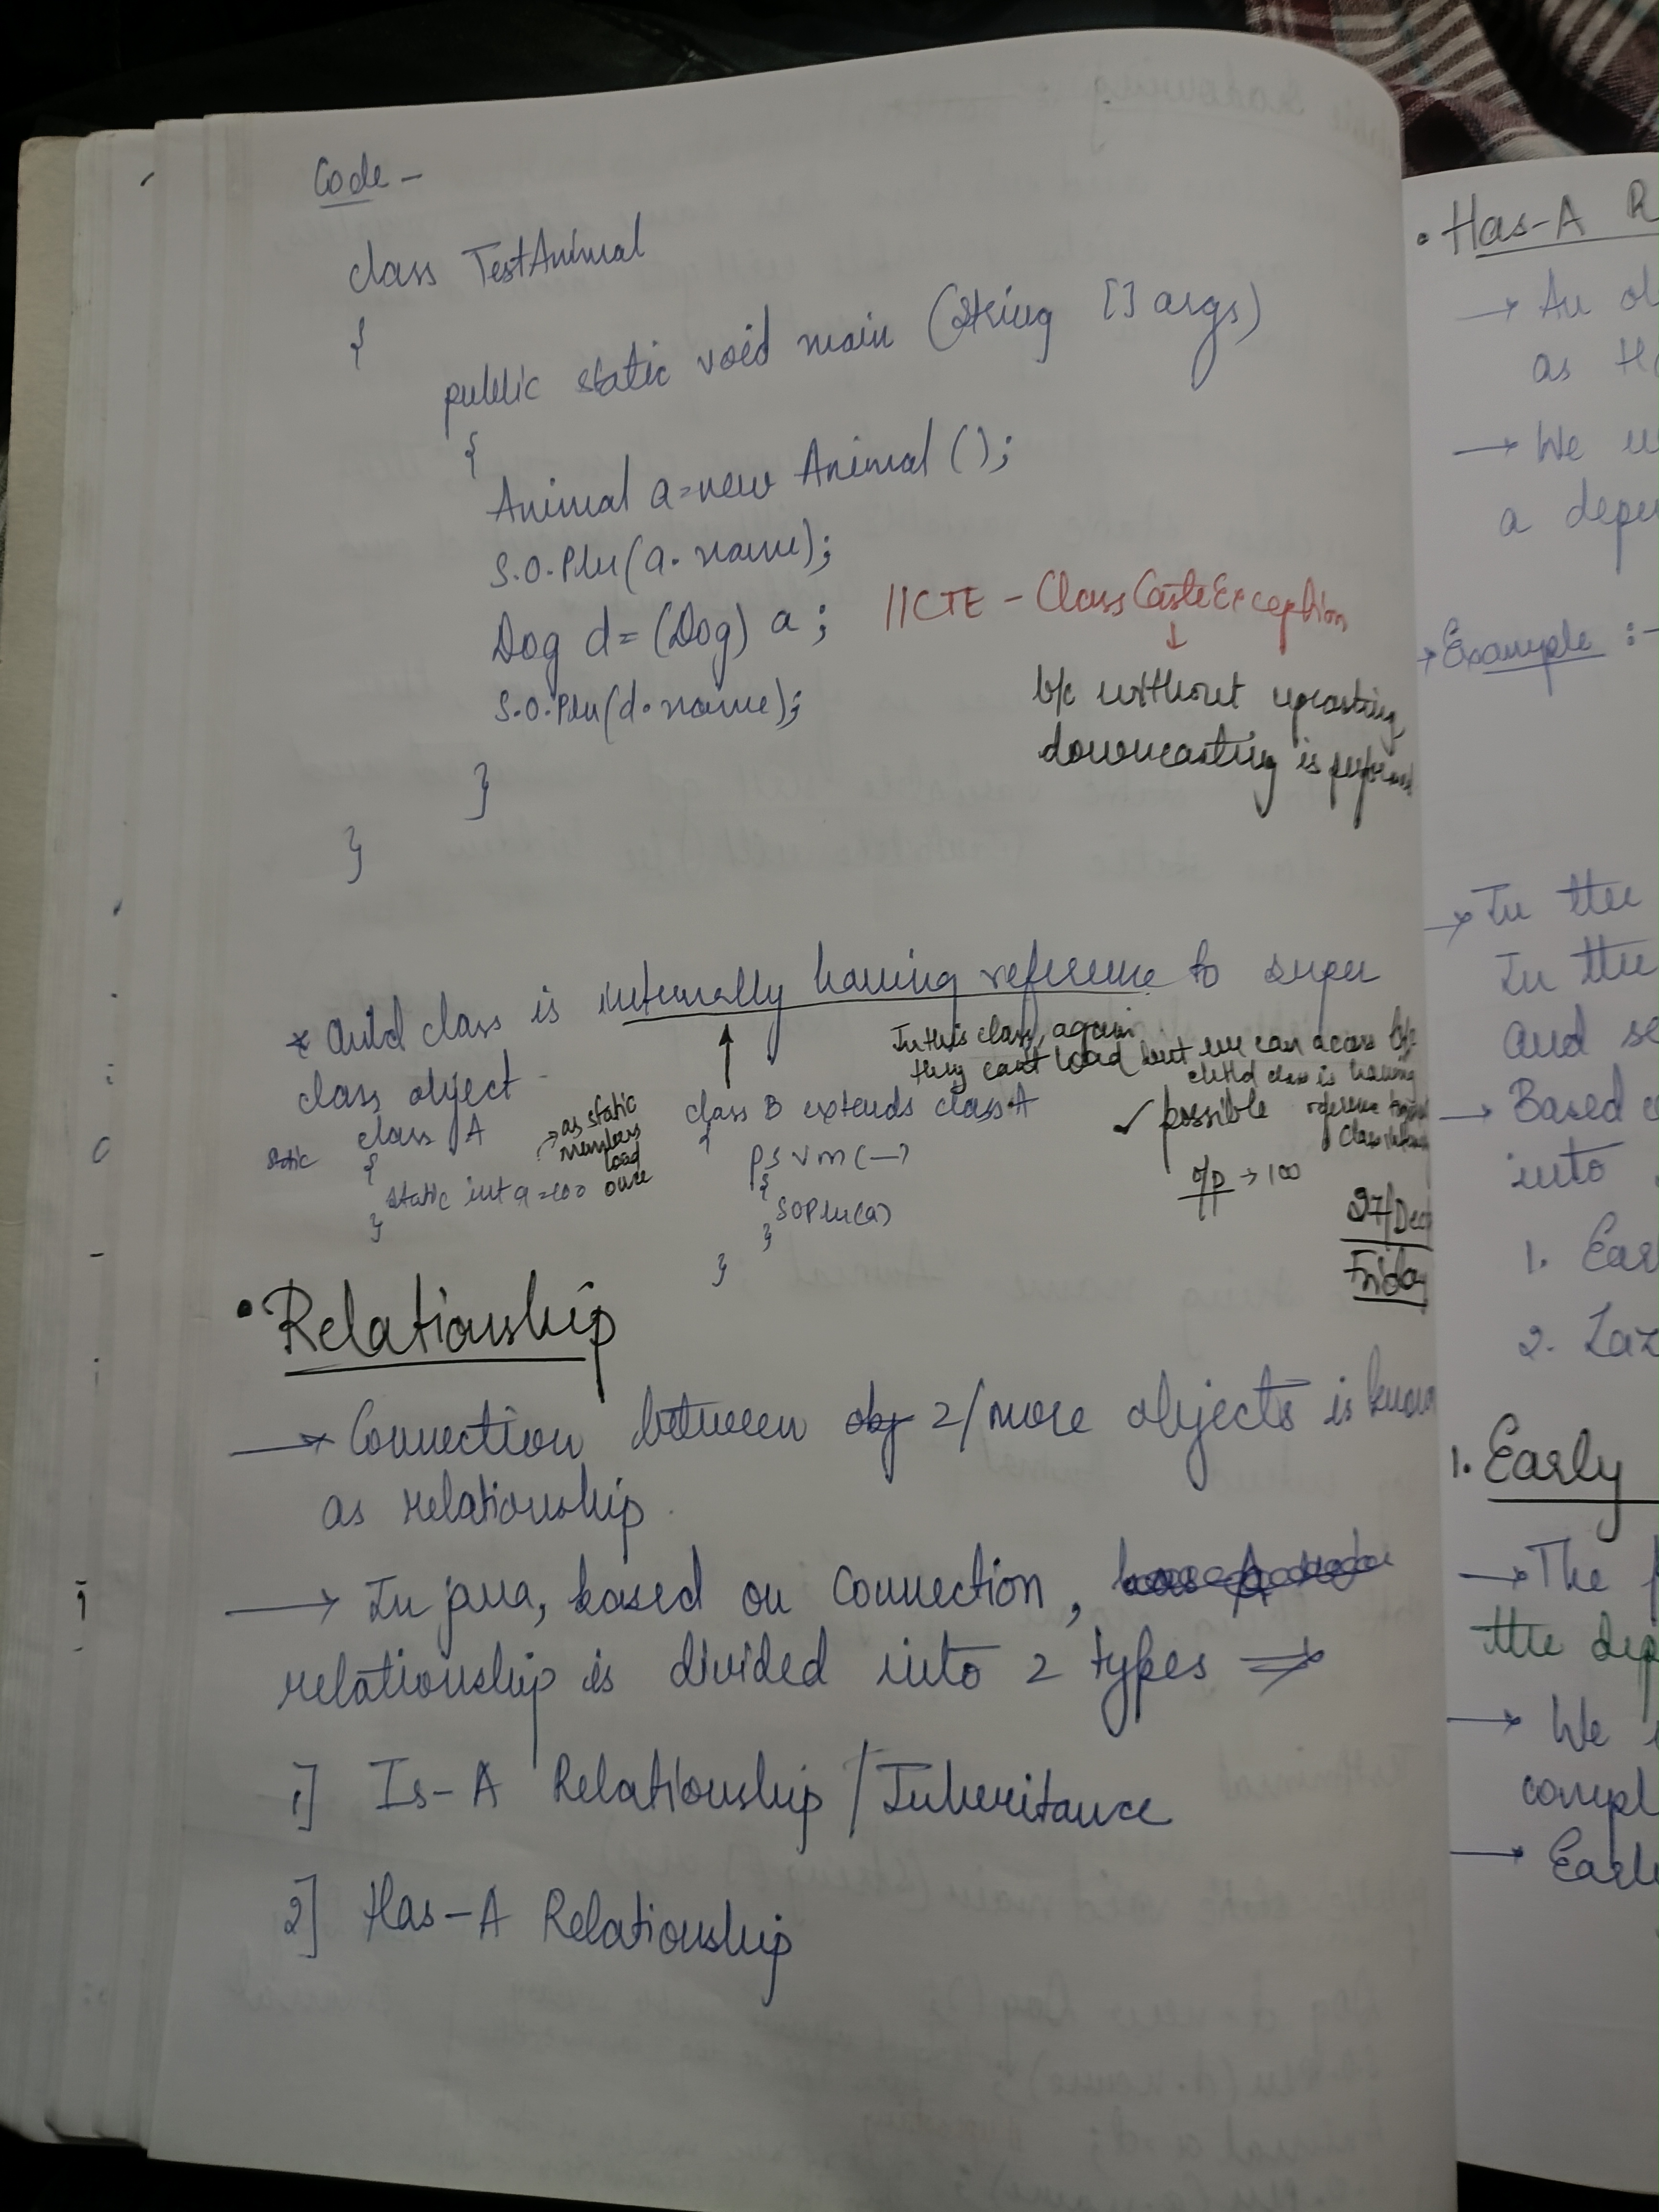 Code -
class TestAnimal
{
public static void main (String [] args)
{
Animal a=new Animal ();
S.O.Pln(a.name);
Dog d=(Dog) a; //CTE - ClassCasteException
↓
S.O.Pln(d.name);
b/c without upcasting,
downcasting is performed
}
}
* Child class is internally having reference to super
class object
In this class, again
they can't load but we can access b/c
child class is having
class A
{
static int a=100
}
static
→ as static
members
load
once
class B extends class A
{
psvm(—)
{
SOPln(a)
}
}
✓ possible
o/p → 100
27/Dec
Friday
• Relationship
→ Connection between obj 2/more objects is known
as relationship.
→ In java, based on connection,
relationship is divided into 2 types ⇒
1] Is-A Relationship / Inheritance
2] Has-A Relationship
• Has-A R
→ An ob
as Ha
→ We
a depe
→ Example :-
→ In the
In the
and se
→ Based
into
1. Earl
2. Laz
1. Early
→ The
the dep
→ We
compl
→ Earl